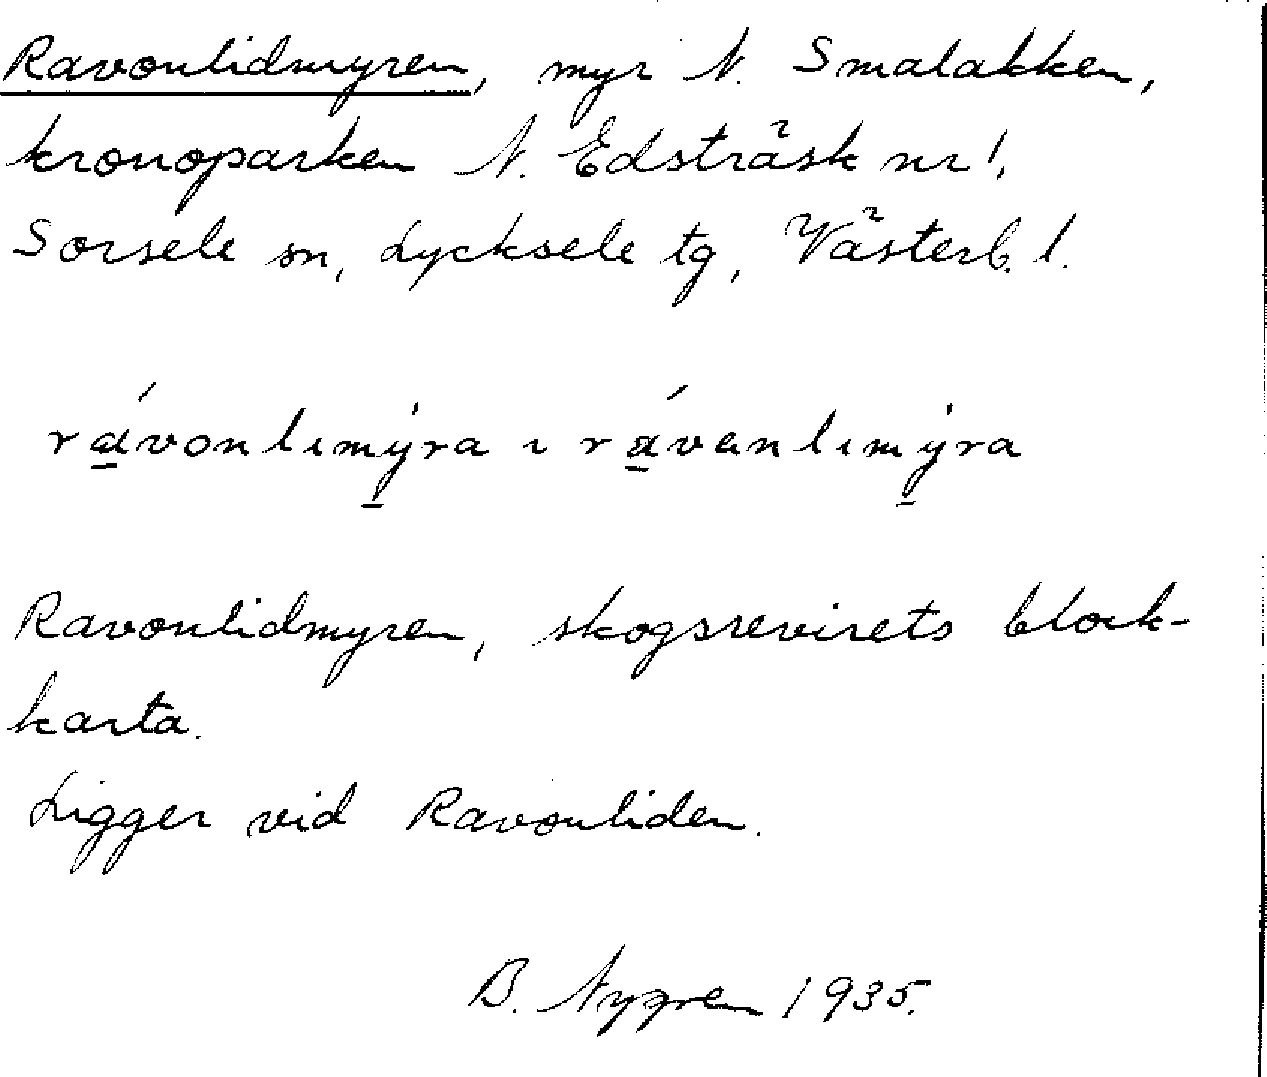 Ravonlidmyren, myr N. Smalakken,
kronoparken N. Edsträsk nr 1,
Sorsele sn, Lycksele tg, Västerb. l.
rávonlımýra ı rávanlımýra
Ravonlidmyren, skogsrevirets block-
karta.
Ligger vid Ravonliden.
B. Nygren 1935.